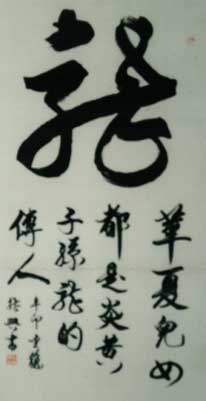 龍
華夏兒女
都是炎黃
子孫龍的
傳人
辛卯
書